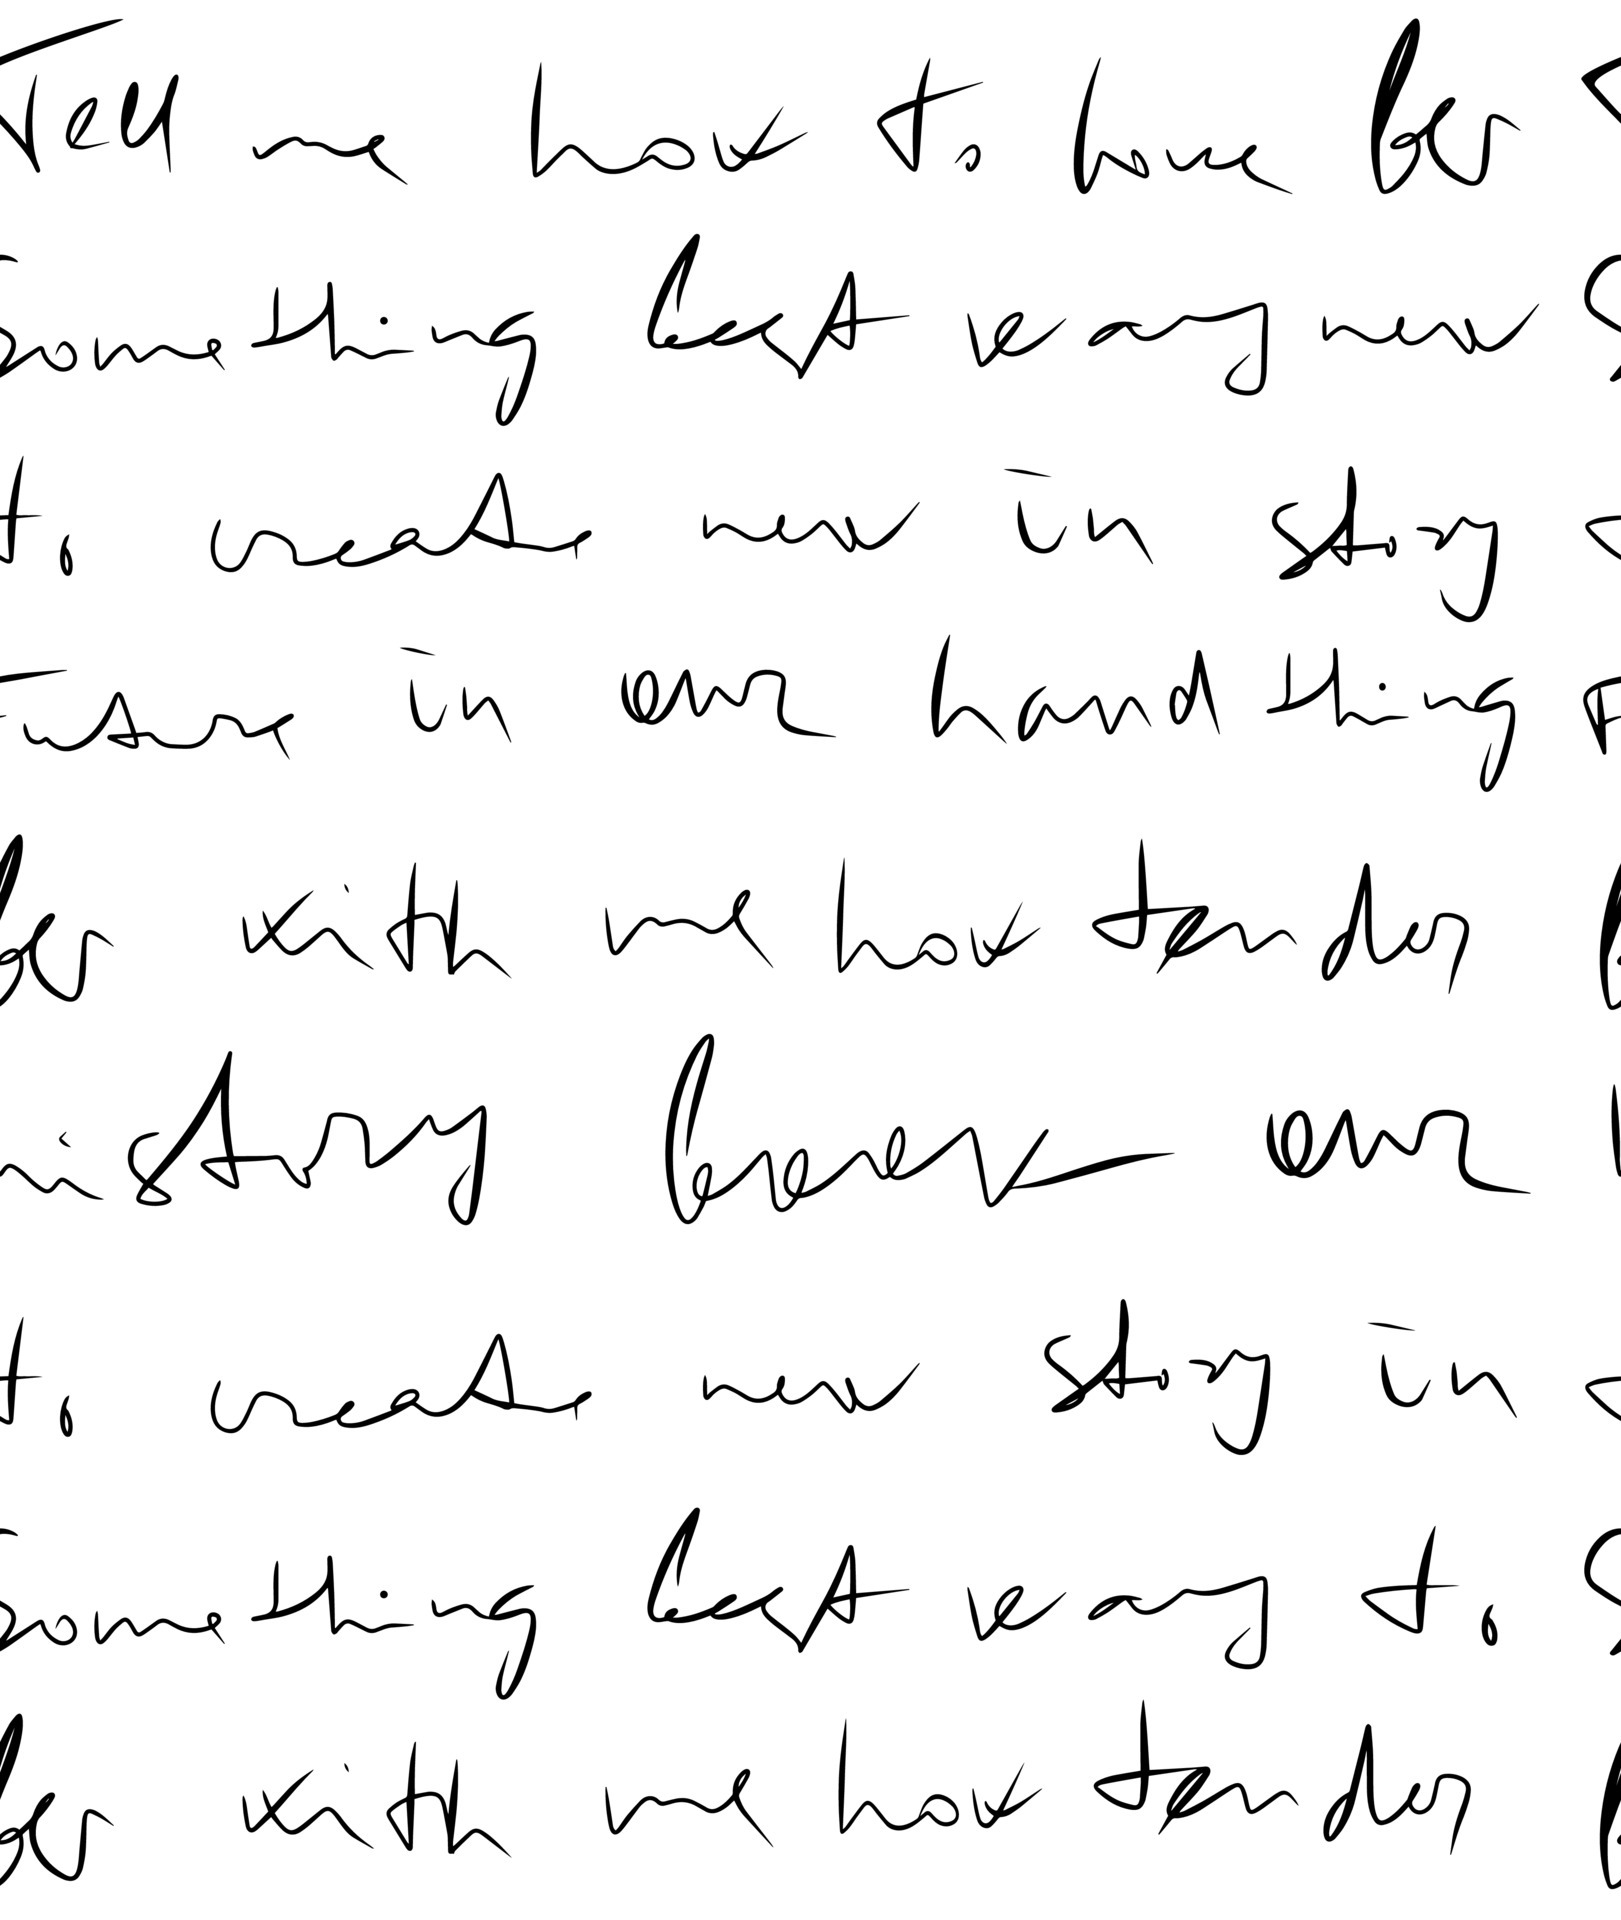 Tell me how to love her
Something best way new
to create new in story
in our hand thing
her with me how tender
story between our
to create new story in
Something best way to
her with me how tender